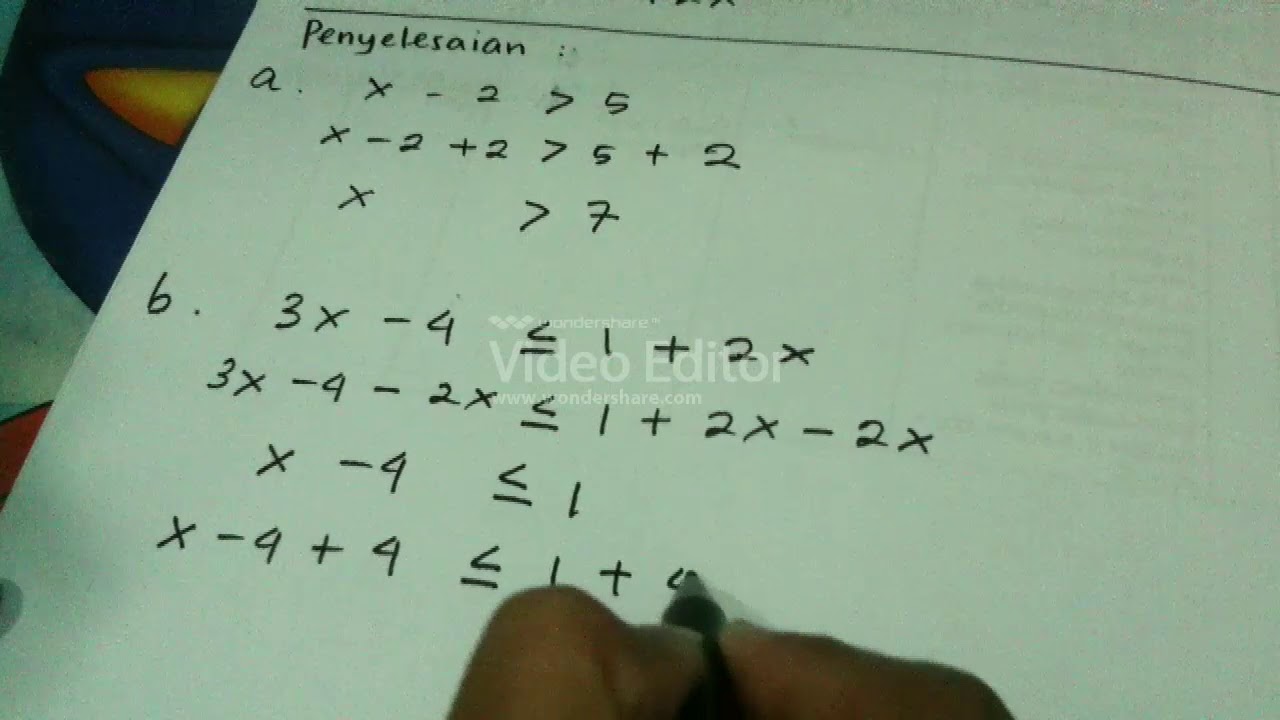 Penyelesaian :
a. x - 2 > 5
x - 2 + 2 > 5 + 2
x > 7
b. 3x - 4 ≤ 1 + 2x
3x - 4 - 2x ≤ 1 + 2x - 2x
x - 4 ≤ 1
x - 4 + 4 ≤ 1 +
wondershare™
Video Editor
www.wondershare.com